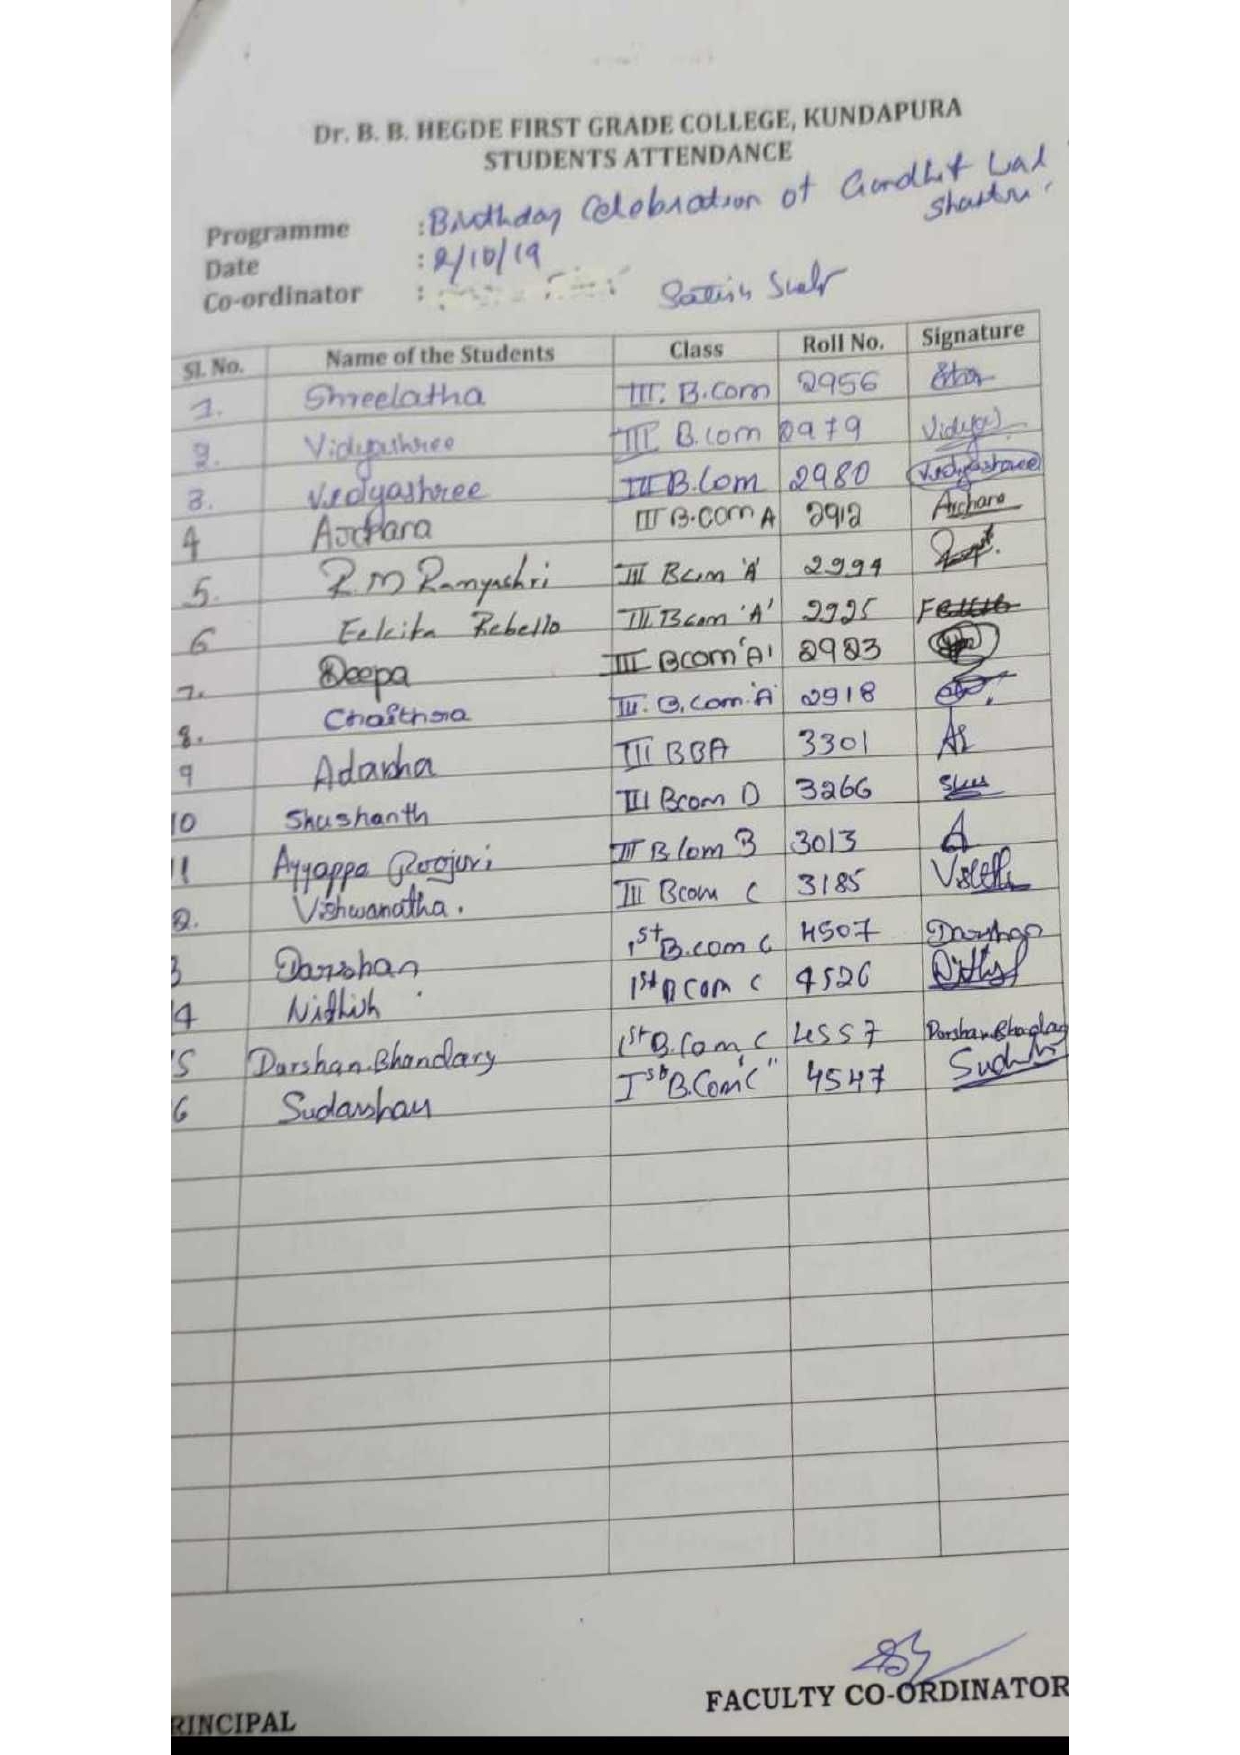 Dr. B. B. HEGDE FIRST GRADE COLLEGE, KUNDAPURA
STUDENTS ATTENDANCE
Programme : Birthday Celebration of Gandhi & Lal Shastri
Date : 2/10/19
Co-ordinator :
Sl. No. Name of the Students Class Roll No. Signature
1. Shreelatha III. B.Com 2956
2. Vidyashree III B.com 2979 Vidya
3. Vidyashree III B.Com 2980 Vidyashree
4 Archana III B.COM A 2912 Archana
5. R.M Ramyashri III Bcom 'A' 2994
6 Felcita Rebello III Bcom 'A' 2925
7. Deepa III Bcom 'A' 2923
8. Chaithra III. B.Com.'A' 2918
9 Adarsha III BBA 3301
10 Shushanth III Bcom D 3266
11 Ayyappa Poojari III B Com B 3013 A
2. Vishwanatha. III Bcom C 3185
3 Darshan 1st B.com C 4507 Darshan
4 Nithish 1st B com C 4526
5 Darshan.Bhandary 1st B.Com, C 4557 Darshan.Bhandary
6 Sudarshan Ist B.Com "C" 4547
FACULTY CO-ORDINATOR
RINCIPAL